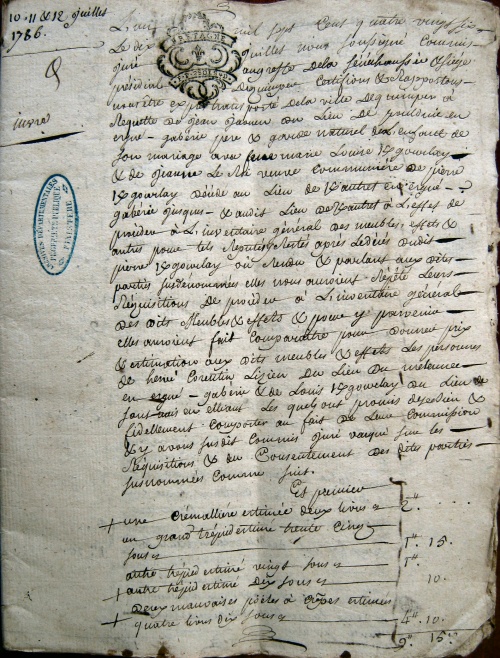 10. 11 & 12 juillet
1786.
L'an mil sept cent quatre vingt six
Le dix juillet nous soussigné Commis
juré au greffe de la sénéchaussée & siège
présidial de quimper Certifions & Rapportons
nous être exprès transporté de la ville de quimper à
Requette de jean
ergué-gabéric père & garde naturel des enfants de
son mariage avec feue marie Louise Kgourlay
& de jeanne Le veuve communière de pierre
Kgourlay décédé au Lieu de en ergué-
gabéric jusques & audit Lieu de à L'effet de
procéder à L'inventaire général des meubles, effets &
autres pour tels après Le décès dudit
pierre Kgourlay où Rendu & parlant aux dites
parties susdénommées elles nous auroient Répété Leurs
Réquisitions de procéder à L'inventaire général
des dits Meubles & effets & pour y parvenir
elles auroient fait comparoître pour donner prix
& estimation aux dits meubles & effets Les personnes
de hervé Corentin Lizien du Lieu du
en ergué-gabéric & de Louis Kgourlay du Lieu de
Les quels ont promis de se bien &
fidellement comporter au fait de Leur Commission
& y avons susdit Commis juré vaqué sur les
Réquisitions & du Consentement des dites parties
susnommées comme suit.
Et premier
une crémaillère estimée deux livres 2#
un grand trépied estimé trente cinq
sous 1# 15.
autre trépied estimé vingt sous 1#
autre trépied estimé dix sous 10.
deux mauvaises poëles à crêpes estimées
quatre livres dix sous 4# 10.
9# 15.
BRETAGNE
ARCHIVES DÉPARTEMENTALES
PROPRIÉTÉ PUBLIQUE
FINISTÈRE